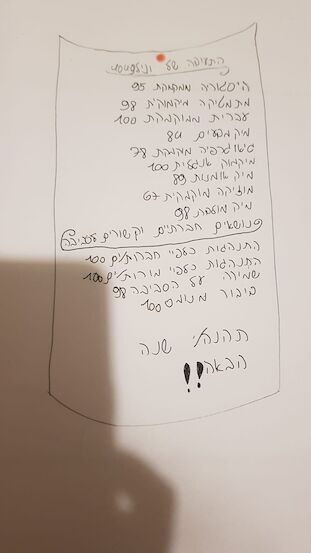 התעודה של
היסטוריה ממקמקת 95
מתמטיקה מיקמוקית 98
עברית ממוקמקת 100
מיקמפעים 84
גיאוגרפיה מקמקת 78
מיקמוק אנגלית 100
מיק אומנות 89
מוזיקה מוקמקית 67
מיק מולדת 98
נושאים חברתים וקשורים לסביבה
התנהגות כלפיי חברות/ים 100
התנהגות כלפיי מורות/ים 100
שמירה על הסביבה 98
דיבור מנומס 100
תהנה/י שנה
הבאה!!